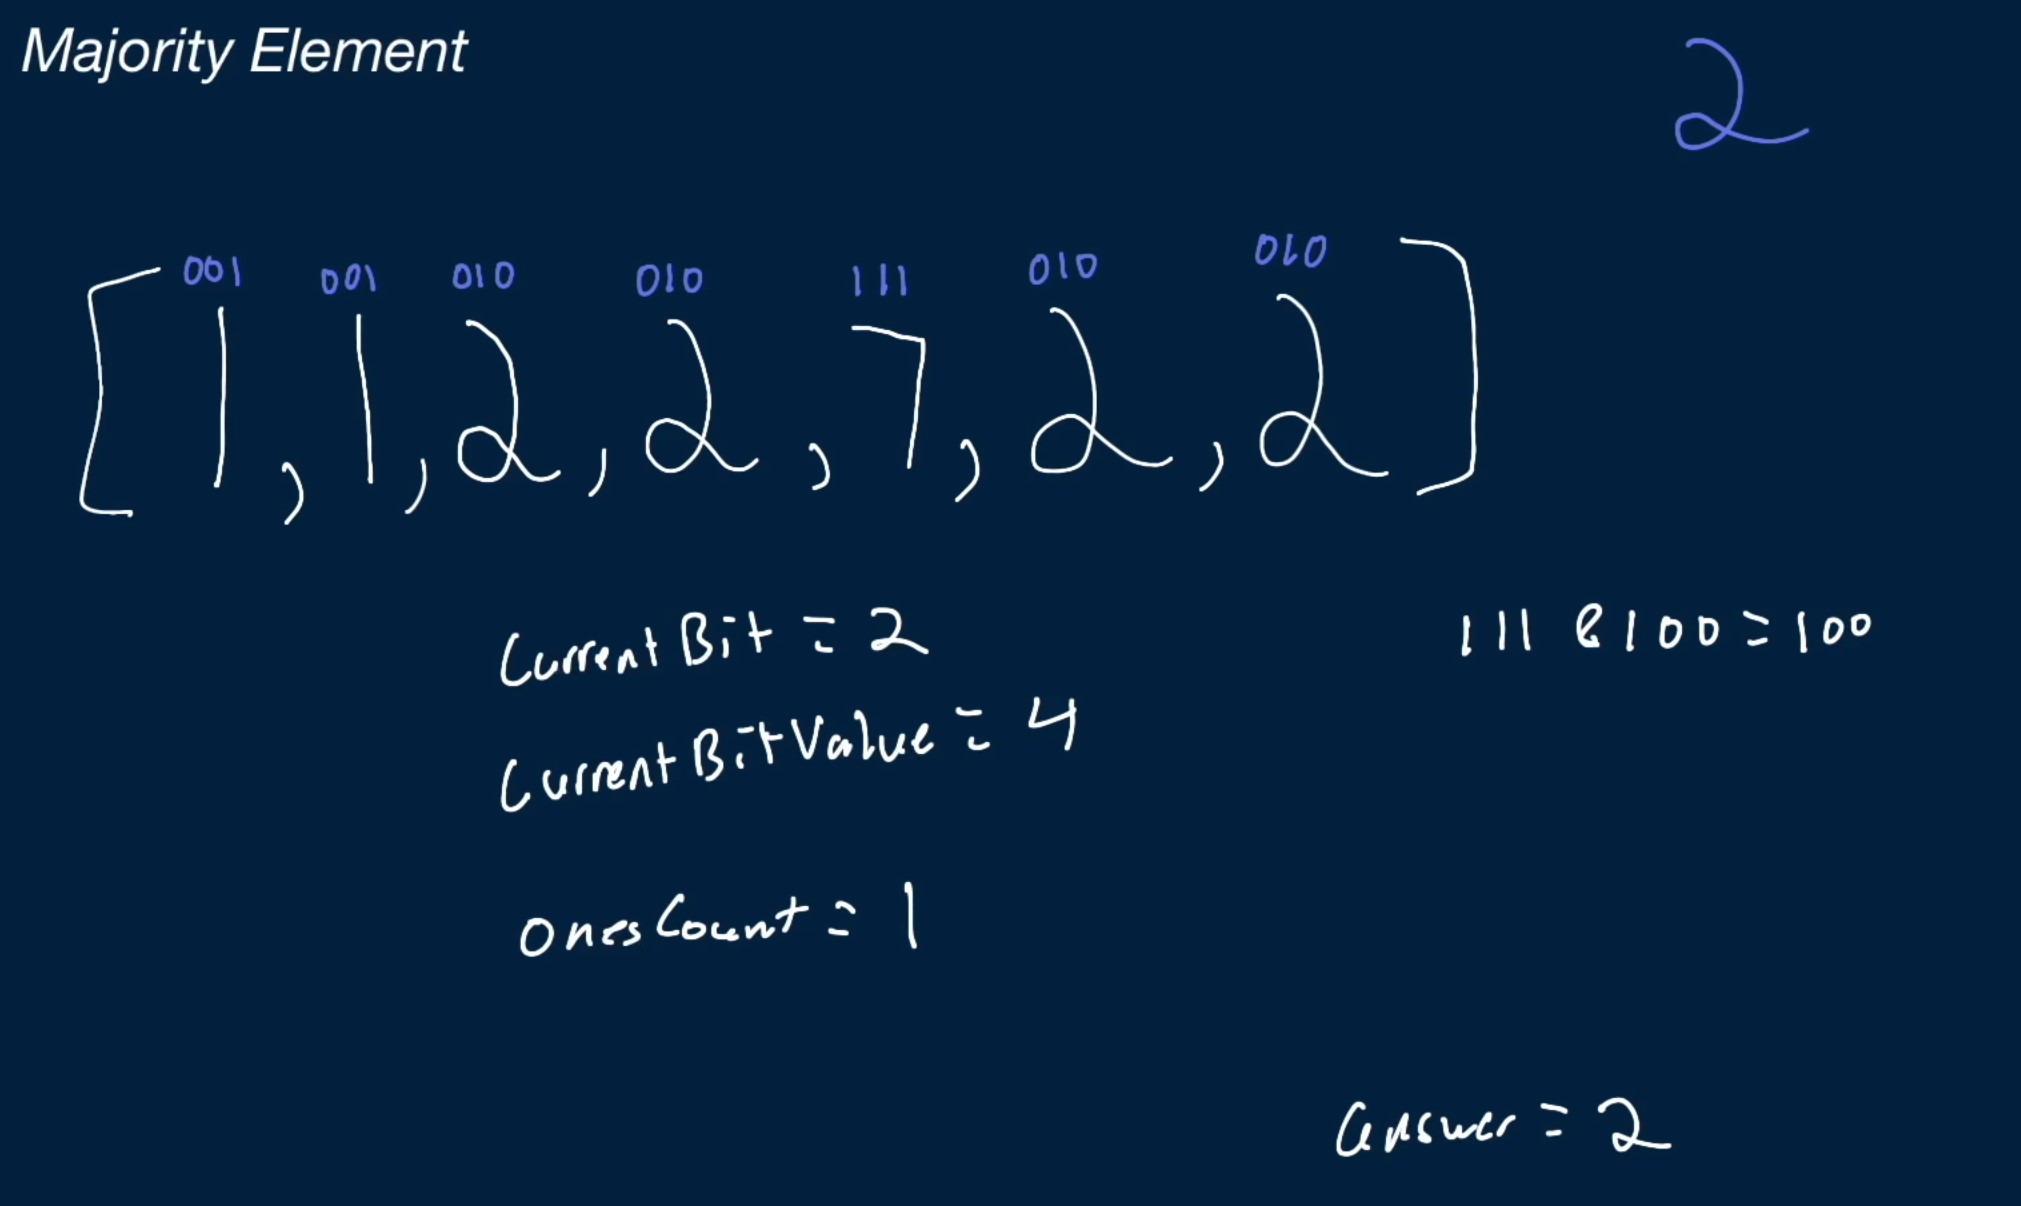 Majority Element
2
001 001 010 010 111 010 010
[1, 1, 2, 2, 7, 2, 2]
CurrentBit = 2
111 & 100 = 100
CurrentBitValue = 4
onesCount = 1
answer = 2